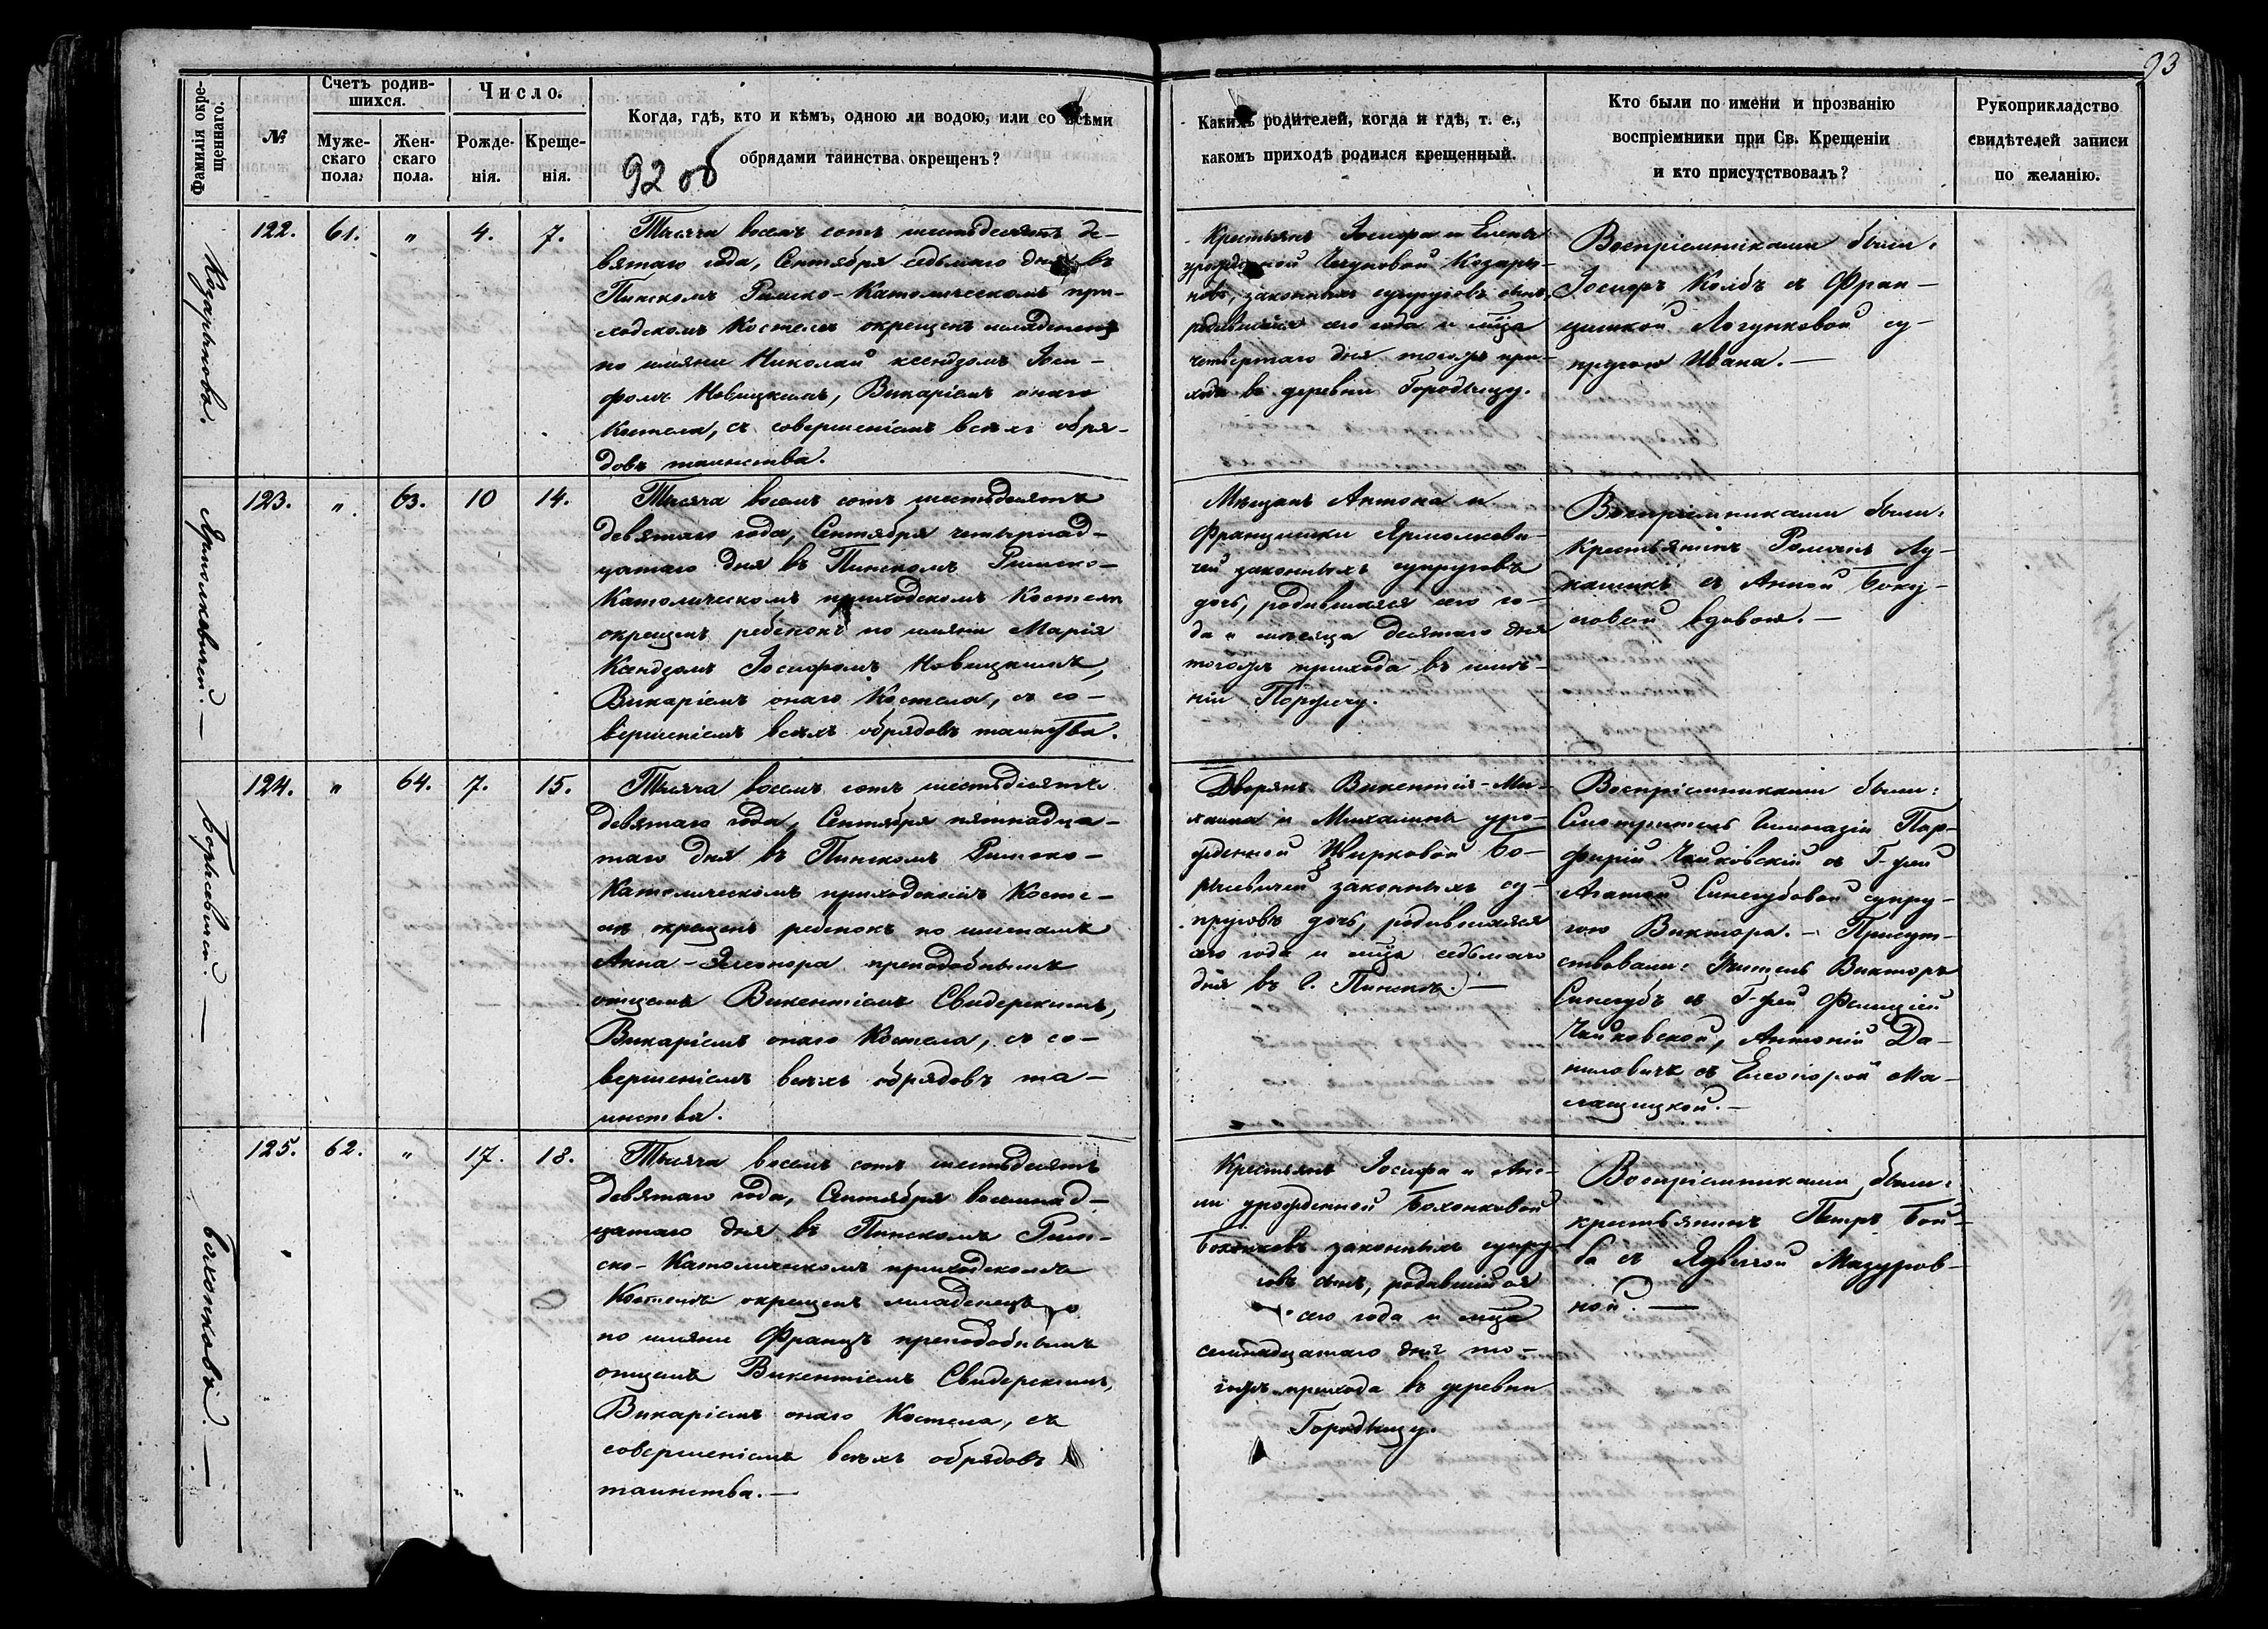 93
Фамилія окре-
щеннаго.
№
Счетъ родив-
шихся.
Муже-
скаго
пола.
Жен-
скаго
пола.
Число.
Рожде-
нія.
Креще-
нія.
Когда, гдѣ, кто и кѣмъ, одною ли водою, или со всѣми
обрядами таинства окрещенъ?
92 об
Какихъ родителей, когда и гдѣ, т. е.,
какомъ приходѣ родился крещенный.
Кто были по имени и прозванію
воспріемники при Св. Крещеніи
и кто присутствовалъ?
Рукоприкладство
свидѣтелей записи
по желанію.
122. 61. " 4. 7.
Тысяча восемь сотъ шестьдесятъ де-
вятаго года, Сентября седьмаго дня въ
Пинскомъ Римско-Католическомъ при-
ходскомъ Костелѣ окрещенъ младенецъ
по имяни Николай ксендзомъ Іоси-
фомъ Новицкимъ, Викаріемъ онаго
Костела, съ совершеніемъ всѣхъ обря-
довъ таинства.
Крестьянъ Іосифа и Елены
урожденной
законныхъ супруговъ сынъ,
родившійся сего года и мца
четвертаго дня тогожъ при-
хода въ деревни Городыщу.
Воспріемниками были:
Іосифъ Колбъ съ Фран-
цишкой Логунковой су-
пругою Ивана.—
Ярмолковичей.—
123. " 63. 10 14.
Тысяча восемь сотъ шестьдесятъ
девятаго года, Сентября четырнад-
цатаго дня въ Пинскомъ Римско-
Католическомъ приходскомъ Костелѣ
окрещенъ ребенокъ по имяни Марія
Ксендзомъ Іосифомъ Новицкимъ,
Викаріемъ онаго Костела, съ со-
вершеніемъ всѣхъ обрядовъ таинства.
Мѣщанъ Антона и
Францишки Ярмолкови-
чей законныхъ супруговъ
дочь, родившаяся сего го-
да и мѣсяца десятаго дня
тогожъ прихода въ имѣ-
ніи
Воспріемниками были:
Крестьянинъ Романъ Лу-
кашикъ съ Анной
вдовою.—
Борысевичей.—
124. " 64. 7. 15.
Тысяча восемь сотъ шестьдесятъ
девятаго года, Сентября пятнадца-
таго дня въ Пинскомъ Римско-
Католическомъ приходскомъ Косте-
лѣ окрещенъ ребенокъ по именамъ
Анна-Элеонора преподобнымъ
отцемъ Викентіемъ Свидерскимъ,
Викаріемъ онаго Костела, съ со-
вершеніемъ всѣхъ обрядовъ та-
инства.
Дворянъ Викентія-Ми-
хаила и Михалины уро-
жденной Цвирковой Бо-
рысевичей законныхъ су-
пруговъ дочь, родившаяся
сего года и мца седьмаго
дня въ г. Пинскѣ.—
Воспріемниками были:
Смотритель Гимназіи Пор-
фирій Чайковскій съ Г-жей
Агатой Синегубовой супру-
гою Виктора.— Присут-
ствовали: Учитель Викторъ
Синегубъ съ Г-жей Фелиціей
Чайковской, Антоній Да-
ниловичъ съ Елеонорой Ма-
125. 62. " 17. 18.
Тысяча восемь сотъ шестьдесятъ
девятаго года, Сентября восемнад-
цатаго дня въ Пинскомъ Рим-
ско-Католическомъ приходскомъ
Костелѣ окрещенъ младенецъ
по имяни Францъ преподобнымъ
отцемъ Викентіемъ Свидерскимъ,
Викаріемъ онаго Костела, съ
совершеніемъ всѣхъ обрядовъ
таинства.—
Крестьянъ Іосифа и
урожденной Бохонковой
Бохонковъ законныхъ супру-
говъ сынъ, родившійся
сего года и мца
семнадцатаго дня то-
гожъ прихода въ деревни
Городыщу.
Бохонковъ.—
Воспріемниками были:
крестьянинъ Петръ Бой-
ба съ Ядвигой Мазуров-
ной.—